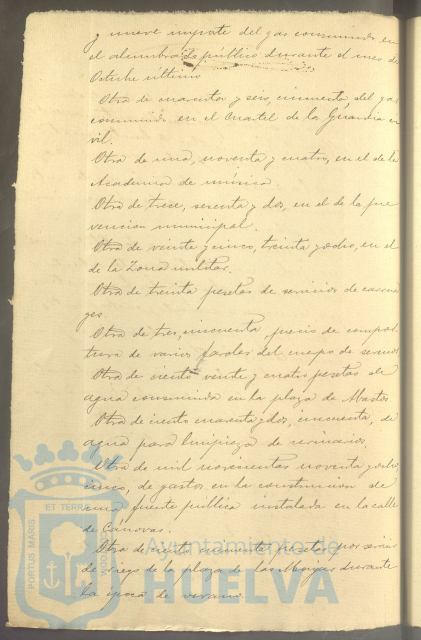 y nueve importe del gas consumido en
el alumbrado público durante el mes de
Octubre último
Otra de cuarenta y seis, cincuenta, del gas
consumido en el Cuartel de la Guardia ci
vil.
Otra de una, noventa y cuatro, en el de la
Academia de música.
Otra de trece, setenta y dos, en el de la pre
vencion municipal.
Otra de veinte y cinco, treinta y ocho, en el
de la Zona militar.
Otra de treinta pesetas de servicios de carrua
ges.
Otra de tres, cincuenta, precio de compos
tura de varios faroles del cuerpo de serenos
Otra de ciento veinte y cuatro pesetas de
agua consumida en la plaza de Abastos
Otra de ciento cuarenta y dos, cincuenta, de
agua para limpieza de urinarios.
Otra de mil novecientas noventa y ocho,
cinco, de gastos en la construccion de
una fuente pública instalada en la calle
de Cánovas.
Otra de ciento cincuenta pesetas por servicio
de riego de la plaza de las Monjas durante
la época de verano.
PORTUS MARIS
ET TERRAE
Ayuntamiento de
HUELVA